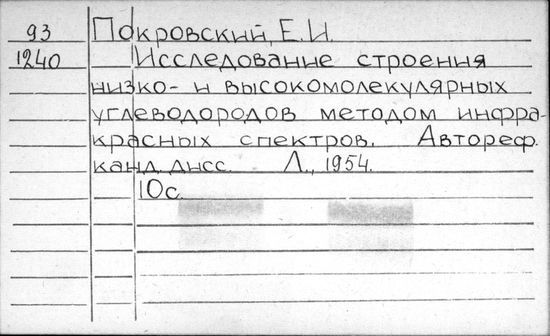 93 Покровский, Е.И.
1240 Исследование строения
низко- и высокомолекулярных
углеводородов методом инфра-
красных спектров. Автореф.
канд. дисс. Л., 1954.
10с.